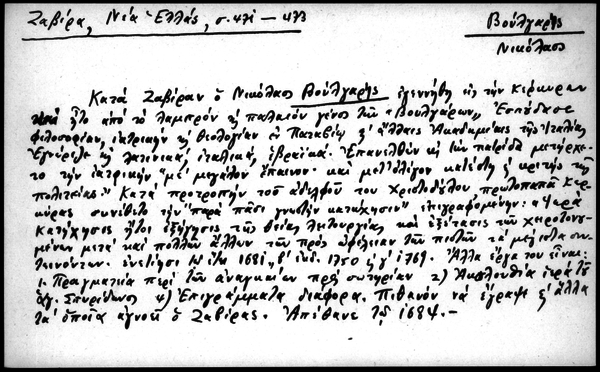 Ζαβίρα, Νέα Ἑλλάς, σ. 471 – 473
Βούλγαρης
Νικόλαος
Κατά Ζαβίραν ὁ Νικόλαος Βούλγαρης ἐγεννήθη εἰς τήν Κέρκυραν
καί ἦτο ἀπό τό λαμπρόν καί παλαιόν γένος τῶν «Βουλγάρων„ Ἐσπούδασε
φιλοσοφίαν, ἰατρικήν καί θεολογίαν ἐν Παταβίῳ καί ἄλλαις Ἀκαδημίαις τῆς Ἰταλίας
Ἐγνώριζε καί λατινικά, ἰταλικά, ἑβραϊκά. Ἐπανελθών εἰς τήν πατρίδα μετήρχε-
το τήν ἰατρικήν "μέ μεγάλον ἔπαινον· καί μετ' ὀλίγον κατέστη καί κριτής τῆς
πολιτείας" Κατά προτροπήν τοῦ ἀδελφοῦ του Χριστοδούλου πρωτοπαπᾶ Κερ-
κύρας συνέθετο τήν "παρά πᾶσι γνωστήν κατήχησιν" ἐπιγραφομένην: «Ἱερά
Κατήχησις ἤτοι ἐξήγησις τῆς θείας λειτουργίας καί ἐξέτασις τῶν χειροτονου-
μένων μετά καί πολλῶν ἄλλων τῶν πρός ὠφέλειαν τῶν πιστῶν τά μέγιστα συν-
τεινόντων. ἐνετίῃσι τῷ ἔτει 1681, β' ἐκδ. 1750 καί γ' 1769. Ἄλλα ἔργα του εἶναι:
1. Πραγματεία περί τῶν ἀναγκαίων πρός σωτηρίαν 2) Ἀκολουθία ἱερά τοῦ
ἁγ. Σπυρίδωνος 4) Ἐπιγράμματα διάφορα. Πιθανόν νά ἔγραψε καί ἄλλα
τά ὁποῖα ἀγνοεῖ ὁ Ζαβίρας. Ἀπέθανε τῷ 1684.–